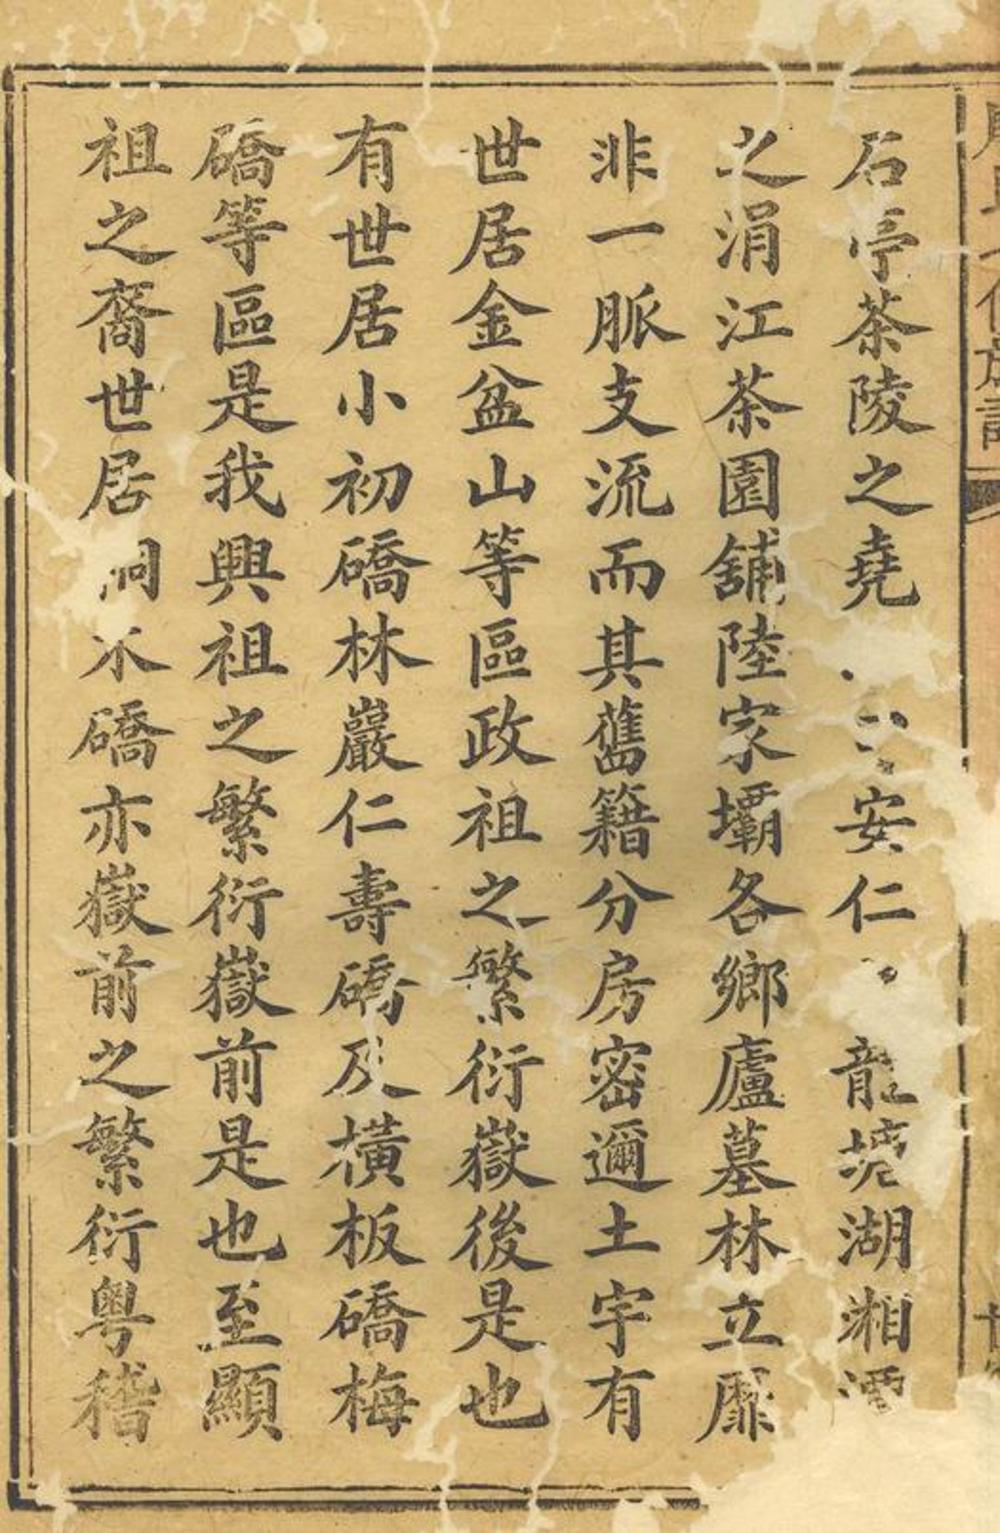 石亭茶陵之堯安仁龍境湖湘潭
之涓江茶園舖陸家壩各鄉廬墓林立靡
非一脈支流而其舊籍分房密邇土宇有
世居金盆山等區政祖之繁衍嶽後是也
有世居小初礄林巖仁壽礄及橫板礄梅
礄等區是我興祖之繁衍嶽前是也至顯
祖之裔世居洞木礄亦嶽前之繁衍粵稽